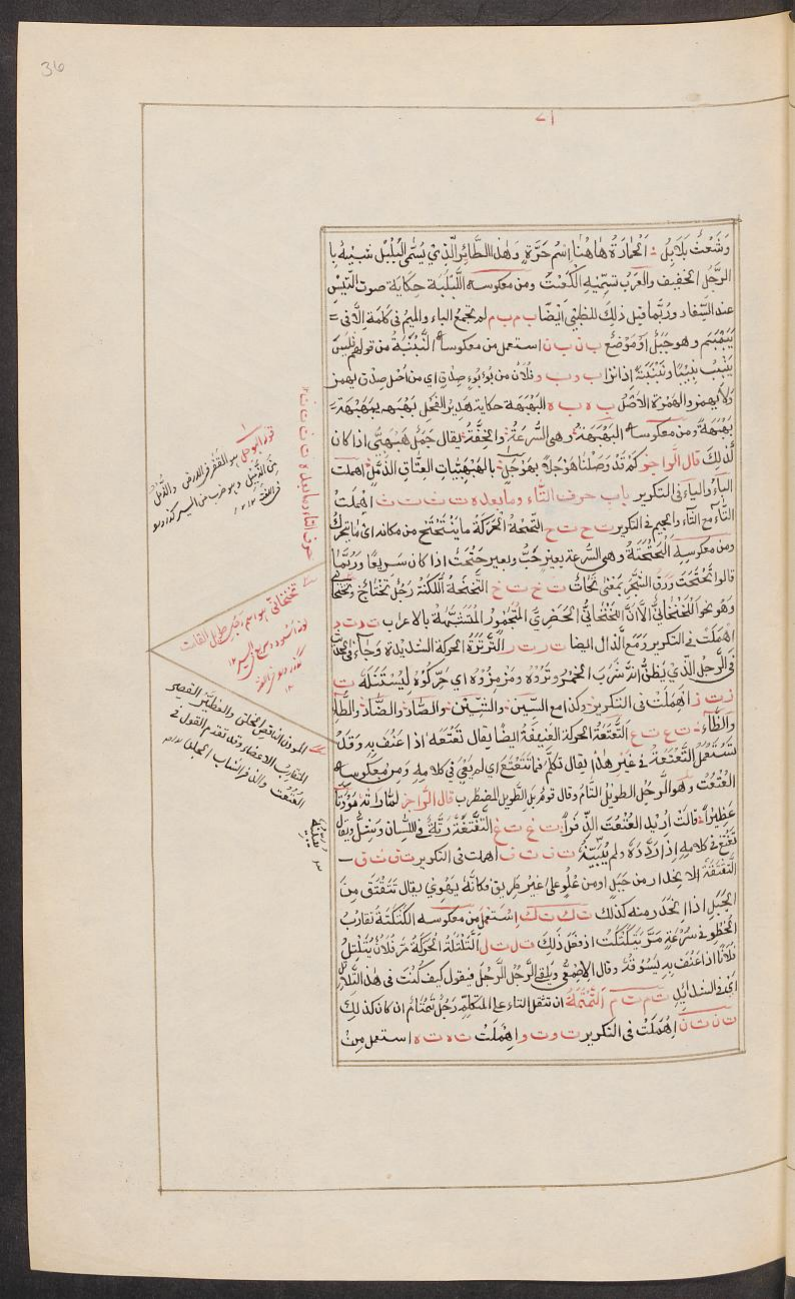 36
وَشَعْثٍ بَلَابِلُ : اَلْحَادَةُ هَاهُنَا اِسْمُ حَرَّةٍ وَهٰذَا الطَّائِرُ الَّذِيْ يُسَمَّى الْبُلْبُلَ شبيهُ با
الرَّجُلِ الخفيف والعَرَبُ تسمِّيْهِ الكُعَيْتَ ومن معكوسه اللَّبْلَبَة حِكَايَة صوت التَّيْسِ
عند السِّفاد ورُبَّما قيل ذلِكَ للظبْيِ اَيْضًا ب م ب م لم تجتمع الباء والميم فى كلمة اِلَّا فى =
يَبَمْبَم وهو جَبَلٌ اَوْ مَوْضَعٌ ب ن ب ن استعمل من معكوسه النَّبْنَبَةُ من قولهم تَيْسٌ
يَنِبُّ نَبِيْبًا وَنَبْنَبَةً اذا نزا ب و ب و فلان من بُؤْبُؤِ صِدْقٍ اى من اَصْل صِدْق يهمز
وَلَا يهمز والهَمْزة الاَصْلُ ب ه ب ه البَهْبَهة حكاية هَدِيْر الفَحْلِ بَهْبَه يبَهْبِهُ =
بَهْبَهَةً ومن معكوسه الهَبْهَبَة وهى السُّرعَةُ والخِفَّةُ يقال جَمَلٌ هَبْهَبِىٌّ اذا كان
كَذلِكَ قال الرَّاجز كَمْ قَدْ وَصَلْنَا هَوْجَلًا بِهَوْجَلٍ بالهَبْهَبِيَّاتِ العِتَاقِ الذُّمَّلِ اهملت
البَاءُ والياءُ فى التكرير باب حرف التَّاء وما بعده ت ث ت ث اُهْمِلَتْ
التَّاءُ مع الثَّاء والجيم فى التكرير ت ح ت ح التَّحتَحَةُ الحَرَكَةُ مَا يَتَتَحْتَح من مكانه اىْ مَا يَتَحَرَّكُ
ومن معكوسه الْحَتْحَتَةُ وهى السُّرعة بعير حَتٌّ وبعير حَتْحَتٌ اذا كان سَرِيعًا وَرُبَّمَا
قالوا تَحَتْحَتَ وَرَقُ الشَّجَرِ بمَعْنى تَحَاتَّ ت خ ت خ التَّخْتَخَةُ اللُّكْنَةُ رَجُلٌ تَخْتَاخٌ وتَخْتَخَانِىٌّ
وَهُو نَحو اللَّخْلَخَانِىِّ اِلَّا اَنَّ اللَّخْلَخَانِىَّ الحَضَرِىُّ المُتَجَهْوِرُ المُتَشَبِّهُ بالاعراب ت د ت د
اُهْمِلَتْ فى التكرير وَمَعَ الذَّال ايضا ت ر ت ر التَّرْتَرَةُ الحركة الشديدة وجَاءَ فى الحديث
فى الرَّجُلِ الَّذِىْ يُظَنُّ اَنَّهُ شَرِبَ الخَمْرَ تَرْتِرُوهُ وَمَزْمِزُوْهُ اى حَرِّكُوْهُ لِيُسْتَنْكَهَ ت
ز ت ز اُهْمِلَتْ فى التكرير وكذا مع السِّين والشِّيْن والصَّاد والضَّاد والطَّاءِ
والظَّاءِ ت ع ت ع التَّعْتَعَةُ الحركة العَنِيْفَةُ ايضًا يقال تَعْتَعَهُ اذا عَنُفَ بِهِ وَقَدْ
تُسْتَعْمَلُ التَّعْتَعَةُ فى غَيْر هٰذا يقال تَكَلَّمَ فَمَا تَتَعْتَعَ اى لم يَعْىَ فى كلامه وَمِنْ مَعكوسه
العُتْعُتُ وهُو الرَّجُل الطويلُ التَّامُّ وقال قوم بل الطَّويل المضطرب قال الرَّاجز لَمَّا رَاَتْهُ مُؤْدَنًا
عِظْيَرًّا قالَتْ اُرِيْد العُتْعُتَ الذِّفَرَّا ت غ ت غ التَّغْتَغَةُ رُتَّةٌ فى اللِّسَان وَثِقْلٌ ويقال
تَغْتَغَ فى كلامه اِذا رَدَّدَهُ ولم يُبَيِّنْهُ ت ف ت ف اهملت فى التكرير ت ق ت ق –
التَّقْتَقَةُ الانحدار من جَبَلٍ او من عُلُوٍّ على غير طريق فكانَّهُ يَهْوِيْ يقال تَتَقْتَقَ مِنَ
الجَبَلِ اذا انحَدَرَ منه كذلك ت ك ت ك اِسْتُعْمِلَ من معكوسه الكَتْكَتَةُ تقارُبُ
الخَطْوِ فى سُرْعَةٍ مَرَّ يَتَكَتْكَتُ اذ فعَلَ ذَلِكَ ت ل ت ل اَلتَّلْتَلَةُ الْحَرَكَةُ مَرَّ فُلَانٌ يُتَلْتِلُ
فُلَانًا اذا عَنُفَ بِهِ بِسَوْقِهِ وقال الاصمعى وَيَلقَى الرَّجُلُ الرَّجُلَ فيَقول كيف كُنْتَ فى هٰذه التَّلَاتِل
اَىْ فى الشدايْدِ ت م ت م التَّمْتَمَةُ ان تثقل التاء على المُتَكَلِّم رَجُلٌ تَمْتَامٌ اِن كان كذلِكَ
ت ن ت ن اُهْمِلَتْ فى التكرير ت و ت و اهْمِلَتْ ت ه ت ه استعمل مِنْ
حرف التاء وما بعده ت ث ت ث
قوله الهوجل